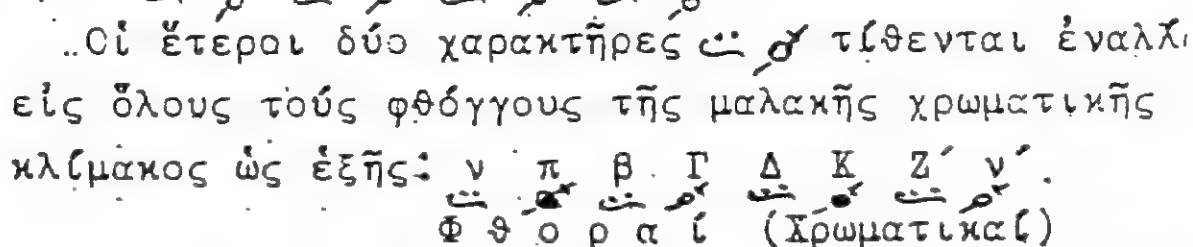 ..Οἱ ἕτεροι δύο χαρακτῆρες τίθενται ἐναλλ
εἰς ὅλους τούς φθόγγους τῆς μαλακῆς χρωματικῆς
κλίμακος ὡς ἑξῆς: ν π β Γ Δ Κ Ζ΄ ν΄.
Φθοραί (Χρωματικαί)